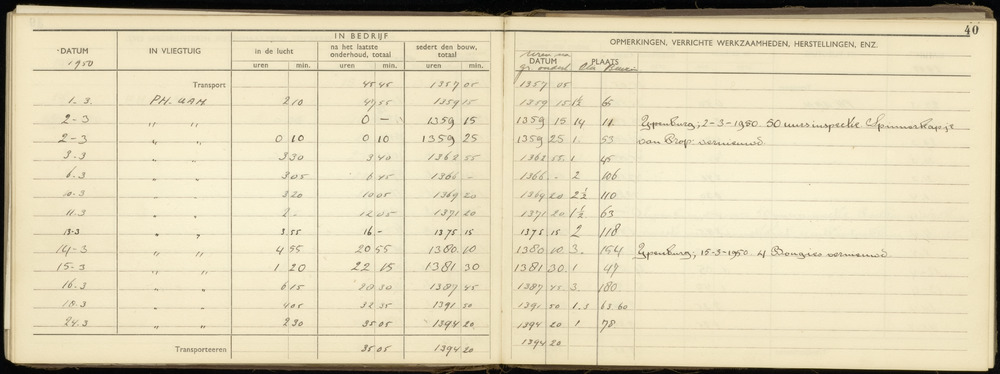 40
IN BEDRIJF
DATUM IN VLIEGTUIG in de lucht na het laatste onderhoud, totaal sedert den bouw, totaal DATUM PLAATS OPMERKINGEN, VERRICHTE WERKZAAMHEDEN, HERSTELLINGEN, ENZ.
1950 uren min. uren min. uren min.
Transport 45 45 1357 05 1357 05
1-3. PH. UAH 2 10 47 55 1359 15 1359 15 1½ 65
2-3 " " 0 - 1359 15 1359 15 14 11 Ypenburg; 2-3-1950 50 uurs inspectie Spinnerkapje
2-3 " " 0 10 0 10 1359 25 1359 25 1. 53 van Prop vernieuwd
3-3 " " 3 30 3 40 1362 55 1362 55 1. 45
6.3 " " 3 05 6 45 1366 - 1366 - 2 106
10.3 " " 3 20 10 05 1369 20 1369 20 2½ 110
11.3 " " 2 - 12 05 1371 20 1371 20 1½ 63
13-3 " " 3.55 16 - 1375 15 1375 15 2 118
14-3 " " 4 55 20 55 1380 10 1380 10 3. 154 Ypenburg; 15-3-1950 4 Bougies vernieuwd
15-3 " " 1 20 22 15 1381 30 1381 30 1 49
16.3 " " 6 15 28 30 1387 45 1387 45 3. 180
18.3 " " 4 05 32 35 1391 50 1391 50 1.3 63.60
24.3 " " 2 30 35 05 1394 20 1394 20 1 78
Transporteeren 35 05 1394 20 1394 20